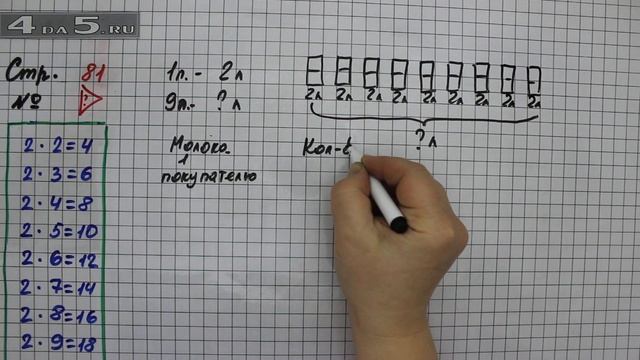 4 DA 5.RU
Стр. 81
№ ?
1п. - 2л
9п. - ? л
2л 2л 2л 2л 2л 2л 2л 2л 2л
? л
2 · 2 = 4
2 · 3 = 6
2 · 4 = 8
2 · 5 = 10
2 · 6 = 12
2 · 7 = 14
2 · 8 = 16
2 · 9 = 18
Молоко
1
покупателю
Кол-